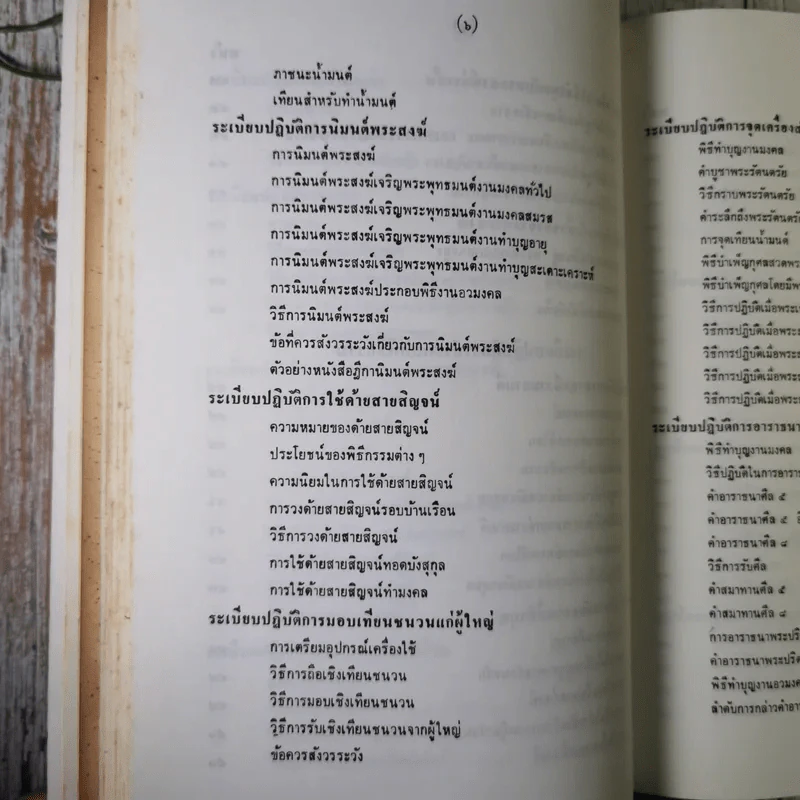 (๖)
ภาชนะน้ำมนต์
เทียนสำหรับทำน้ำมนต์
ระเบียบปฏิบัติการนิมนต์พระสงฆ์
การนิมนต์พระสงฆ์
การนิมนต์พระสงฆ์เจริญพระพุทธมนต์งานมงคลทั่วไป
การนิมนต์พระสงฆ์เจริญพระพุทธมนต์งานมงคลสมรส
การนิมนต์พระสงฆ์เจริญพระพุทธมนต์งานทำบุญอายุ
การนิมนต์พระสงฆ์เจริญพระพุทธมนต์งานทำบุญสะเดาะเคราะห์
การนิมนต์พระสงฆ์ประกอบพิธีงานอวมงคล
วิธีการนิมนต์พระสงฆ์
ข้อที่ควรสังวรระวังเกี่ยวกับการนิมนต์พระสงฆ์
ตัวอย่างหนังสือฎีกานิมนต์พระสงฆ์
ระเบียบปฏิบัติการใช้ด้ายสายสิญจน์
ความหมายของด้ายสายสิญจน์
ประโยชน์ของพิธีกรรมต่าง ๆ
ความนิยมในการใช้ด้ายสายสิญจน์
การวงด้ายสายสิญจน์รอบบ้านเรือน
วิธีการวงด้ายสายสิญจน์
การใช้ด้ายสายสิญจน์ทอดบังสุกุล
การใช้ด้ายสายสิญจน์ทำมงคล
ระเบียบปฏิบัติการมอบเทียนชนวนแก่ผู้ใหญ่
การเตรียมอุปกรณ์เครื่องใช้
วิธีการถือเชิงเทียนชนวน
วิธีการมอบเชิงเทียนชนวน
วิธีการรับเชิงเทียนชนวนจากผู้ใหญ่
ข้อควรสังวรระวัง
ระเบียบปฏิบัติการจุดเครื่อง
พิธีทำบุญงานมงคล
คำบูชาพระรัตนตรัย
วิธีกราบพระรัตนตรัย
คำระลึกถึงพระรัตนตรั
การจุดเทียนน้ำมนต์
พิธีบำเพ็ญกุศลสวดพระ
พิธีบำเพ็ญกุศลโดยมีพร
วิธีการปฏิบัติเมื่อพระ
วิธีการปฏิบัติเมื่อพระ
วิธีการปฏิบัติเมื่อพระ
วิธีการปฏิบัติเมื่อพระ
วิธีการปฏิบัติเมื่อพระ
ระเบียบปฏิบัติการอาราธนา
พิธีทำบุญงานมงคล
วิธีปฏิบัติในการอาราธ
คำอาราธนาศีล ๕
คำอาราธนาศีล ๕
คำอาราธนาศีล ๘
วิธีการรับศีล
คำสมาทานศีล ๕
คำสมาทานศีล ๘
การอาราธนาพระปริ
คำอาราธนาพระปริต
พิธีทำบุญงานอวมงค
ลำดับการกล่าวคำอา